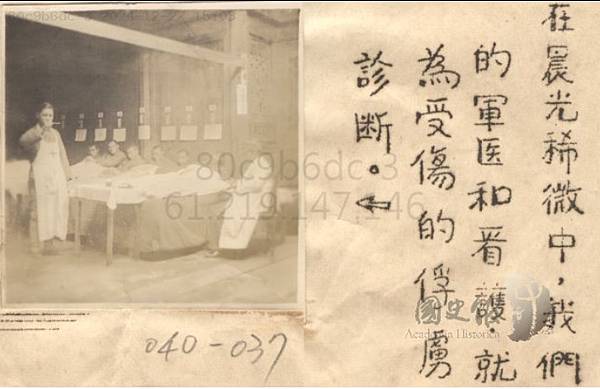 在晨光稀微中，我們
的軍医和看護，就
為受傷的俘虜
診断。←
040-037
80c9b6dc-3
61.219.147.146
國史館
Academia Historica